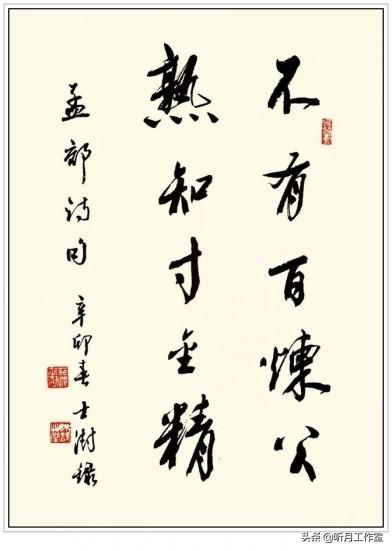 不有百煉火
熟知寸金精
孟郊诗句 辛卯春 士澍録
头条 @听月工作室